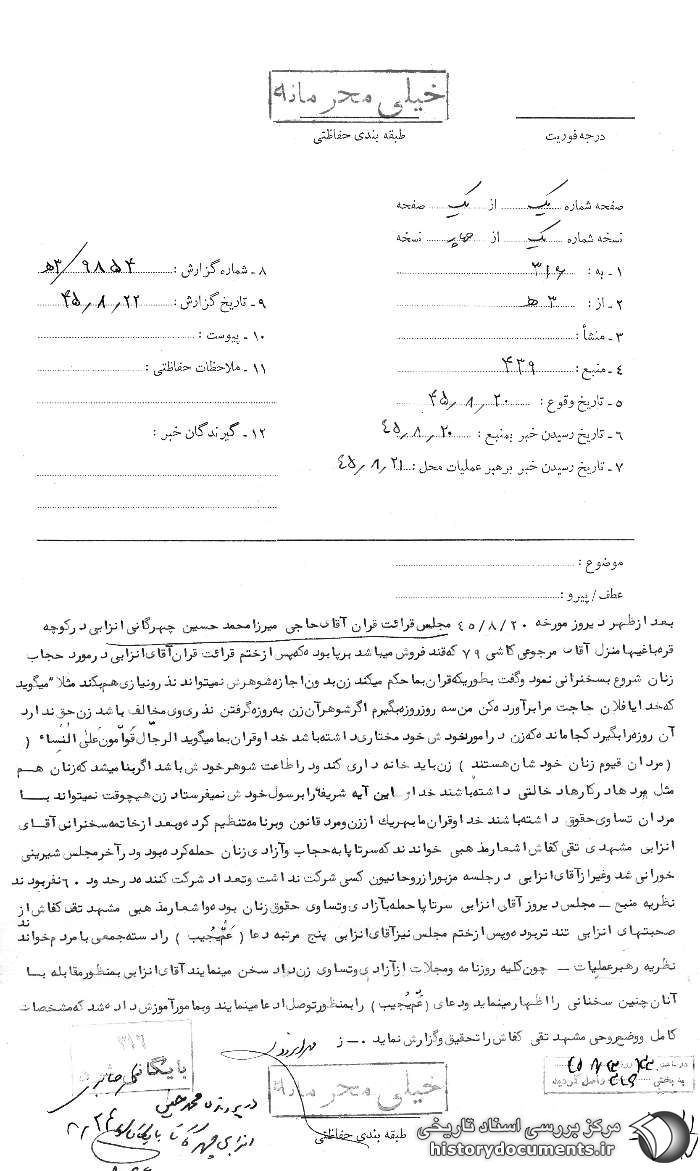 خیلی محرمانه
درجه فوریت
طبقه بندی حفاظتی
صفحه شماره یک از یک صفحه
نسخه شماره یک از چهار نسخه
۱ - به : ۳۱۶
۲ - از : ۳ ه
۳ - منشأ :
۴ - منبع : ۴۳۹
۵ - تاریخ وقوع : ۴۵/۸/۲۰
۶ - تاریخ رسیدن خبر بمنبع : ۴۵/۸/۲۰
۷ - تاریخ رسیدن خبر برهبر عملیات محل : ۴۵/۸/۲۱
۸ - شماره گزارش : ۹۸۵۴/ه۳
۹ - تاریخ گزارش : ۴۵/۸/۲۲
۱۰ - پیوست :
۱۱ - ملاحظات حفاظتی :
۱۲ - گیرندگان خبر :
موضوع :
عطف/پیرو :
بعد از ظهر دیروز مورخه ۴۵/۸/۲۰ مجلس قرائت قران آقای حاجی میرزا محمد حسین چهرگانی انزابی در کوچه
قره باغیها منزل آقای مرجوعی کاشی ۷۹ که قند فروش میباشد برپا بود که پس از ختم قرائت قران آقای انزابی در مورد حجاب
زنان شروع بسخنرانی نمود و گفت بطوریکه قران بما حکم میکند زن بدون اجازه شوهرش نمیتواند نذر و نیازی هم بکند مثلا" میگوید
که خدایا فلان حاجت مرا برآورده کن من سه روز روزه بگیرم اگر شوهر آن زن به روزه گرفتن نذری وی مخالف باشد زن حق ندارد
آن روزه را بگیرد کجا مانده که زن در امور خودش خود مختاری داشته باشد خدا و قران بما میگوید الرجّال قوّامون علی النِّساء (
( مردان قیوم زنان خودشان هستند ) زن باید خانه داری کند و در اطاعت شوهر خودش باشد اگر بنا میشد که زنان هم
مثل مردها در کارها دخالتی داشته باشند خداوند این آیه شریفه را برسول خودش نمیفرستاد زن هیچوقت نمیتواند با
مردان تساوی حقوق داشته باشند خدا و قران ما بهر یک از زن و مرد قانون و برنامه تنظیم کرده و بعد از خاتمه سخنرانی آقای
انزابی مشهدی تقی کفاش اشعار مذهبی خواندند که سرتاپا به حجاب و آزادی زنان حمله کرده بود و در آخر مجلس شیرینی
خورانی شد و غیر از آقای انزابی در جلسه مزبور از روحانیون کسی شرکت نداشت و تعداد شرکت کننده در حدود ۶۰ نفر بودند
نظریه منبع - مجلس دیروز آقای انزابی سرتاپا حمله بآزادی و تساوی حقوق زنان بوده و اشعار مذهبی مشهد تقی کفاش از
صحبتهای انزابی تندتر بوده و پس از ختم مجلس نیز آقای انزابی پنج مرتبه دعا ( عمّیُجیب ) را دسته جمعی با مردم خواندند
نظریه رهبر عملیات - چون کلیه روزنامه و مجلات از آزادی و تساوی زن داد سخن مینمایند آقای انزابی بمنظور مقابله با
آنان چنین سخنانی را اظهار مینماید و دعای ( عمّیُجیب ) را بمنظور توصل ادعا مینمایند و بمامور آموزش داده شد که مشخصات
کامل و وضع روحی مشهد تقی کفاش را تحقیق و گزارش نماید ۰ - ز
۳۱۶
بایگانی
خیلی محرمانه
طبقه بندی حفاظتی
مرکز بررسی اسناد تاریخی
historydocuments.ir